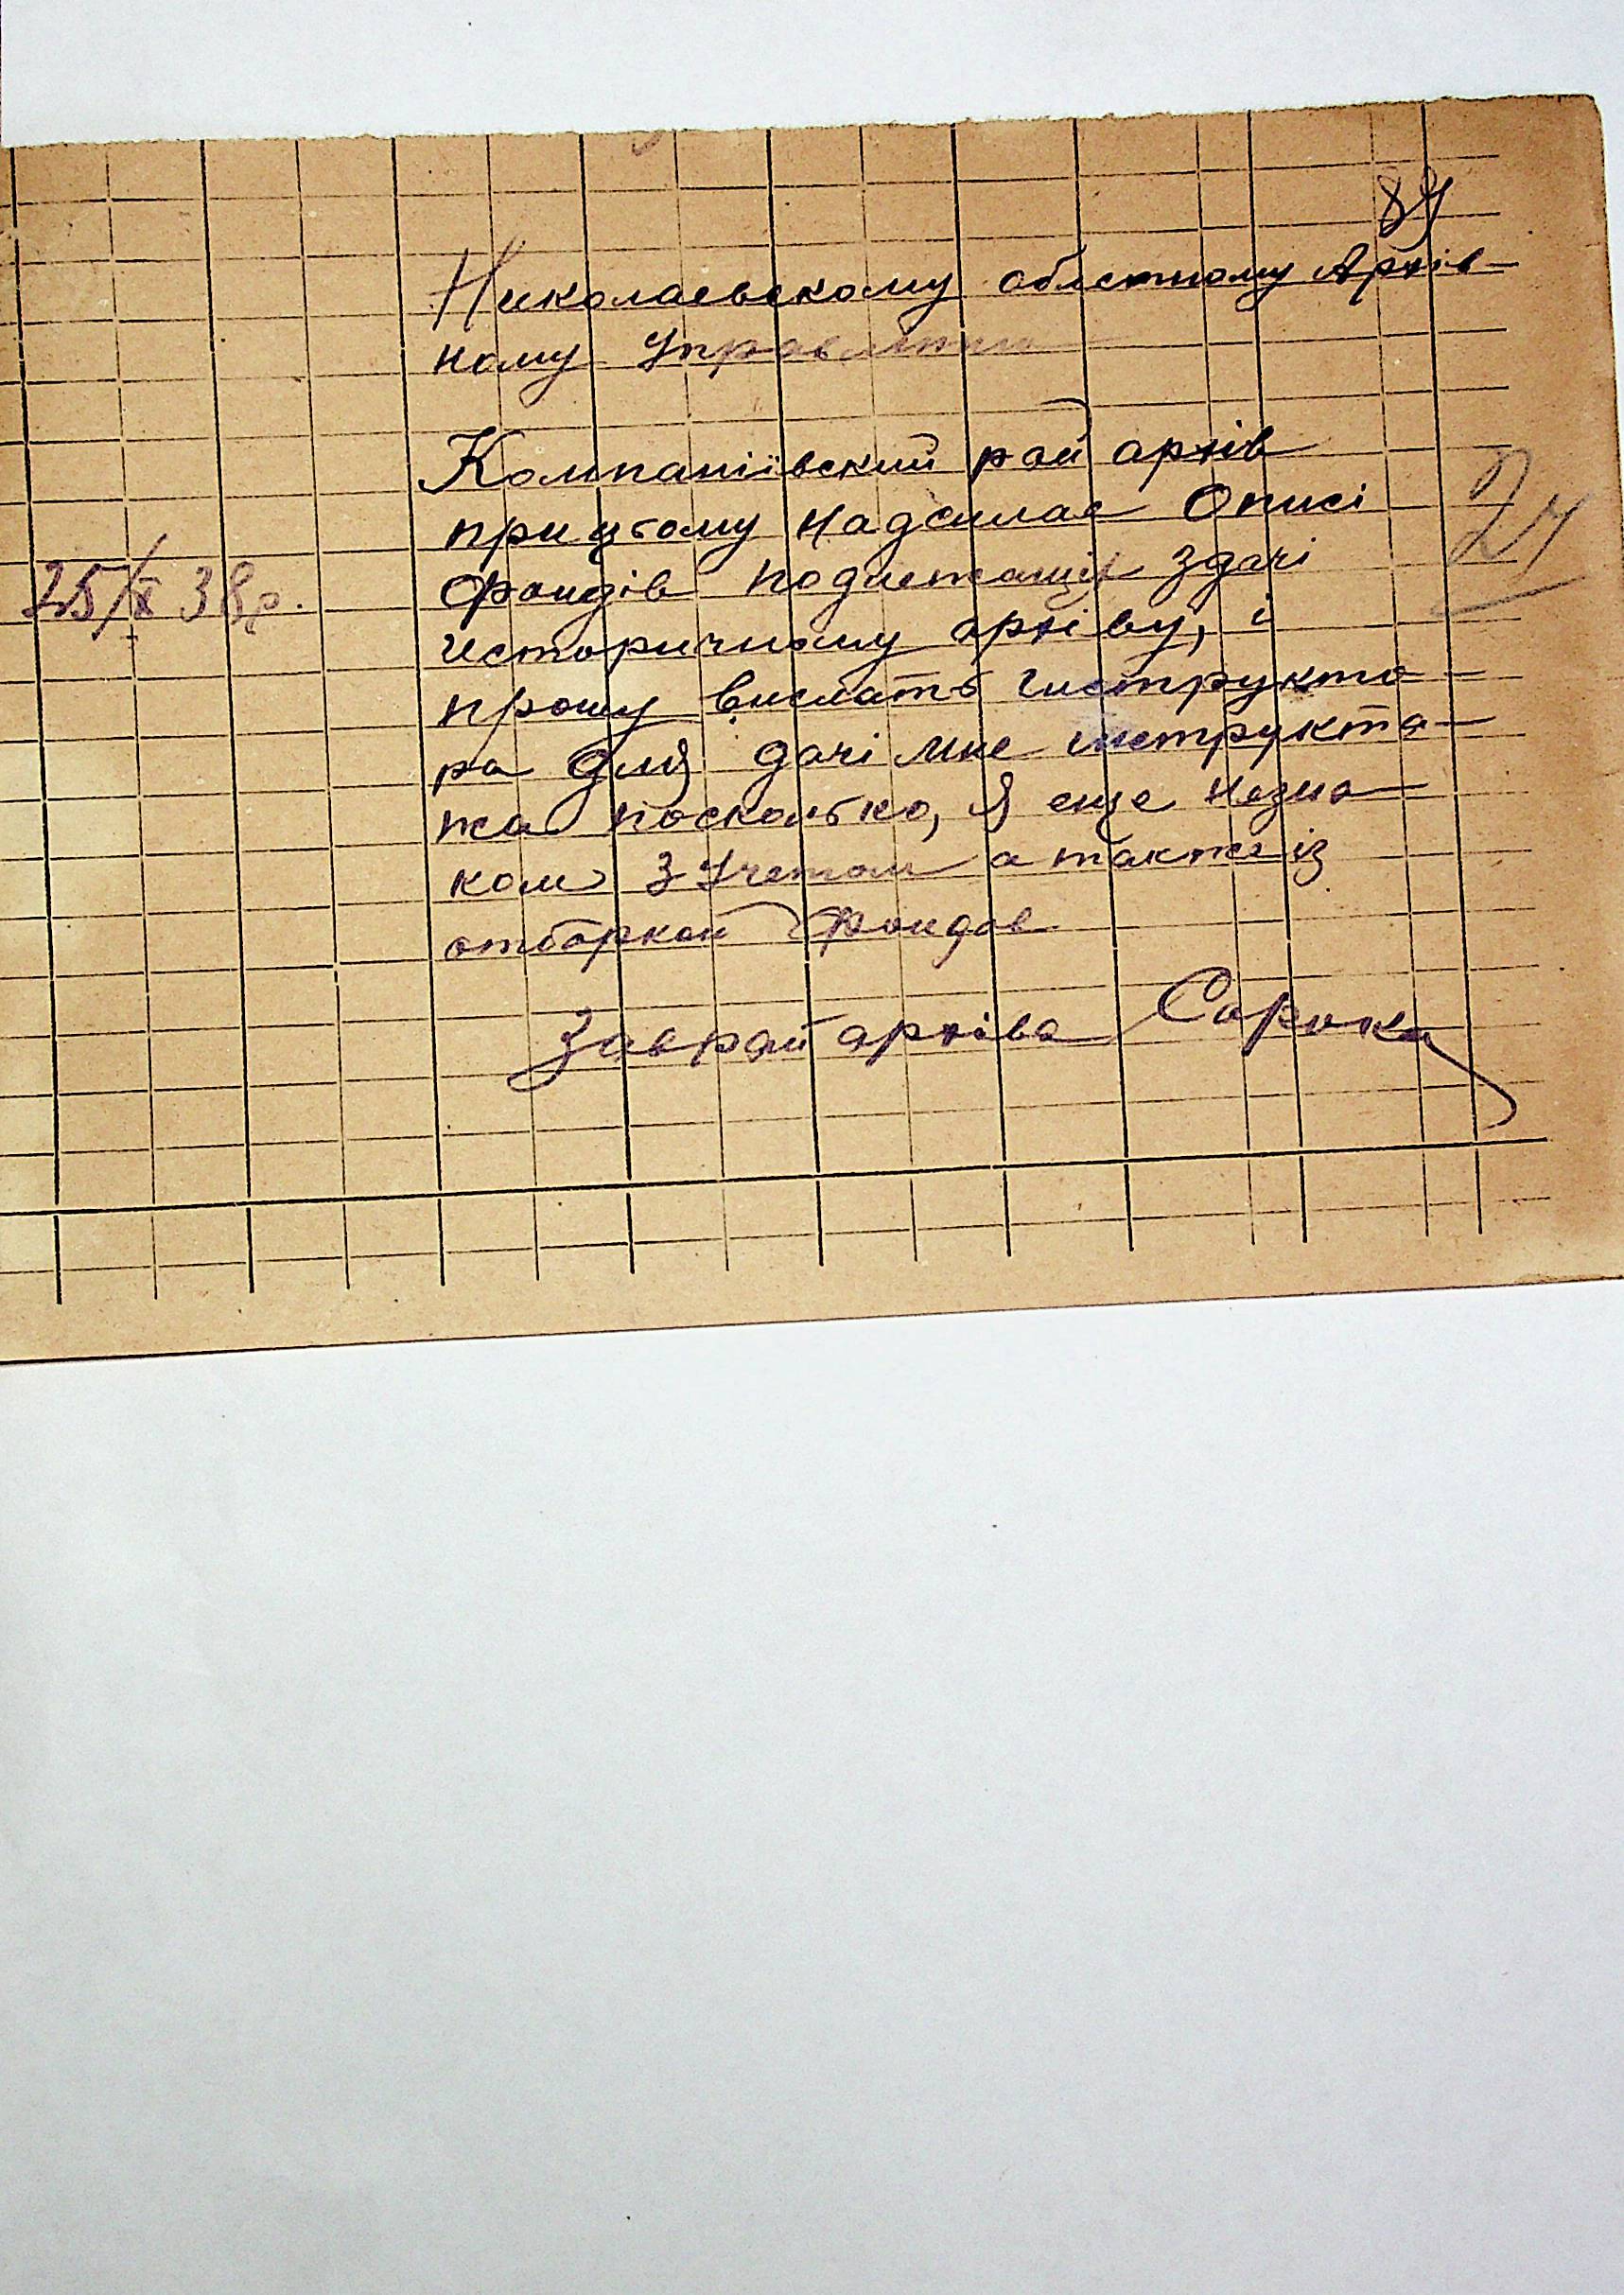 84
Николаевскому областному Архів-
ному Управлінню
Компаніївский рай архів
прицьому надсилае Описі
фондів подлежащіх здачі
25/X 38р.
историчному архіву, і
24
прошу вислать инструкто-
ра для дачі мне инструкта-
жа посколько, я еще незна-
ком з Учетом а также із
отборкой Фондов
Заврайархіва Сорока